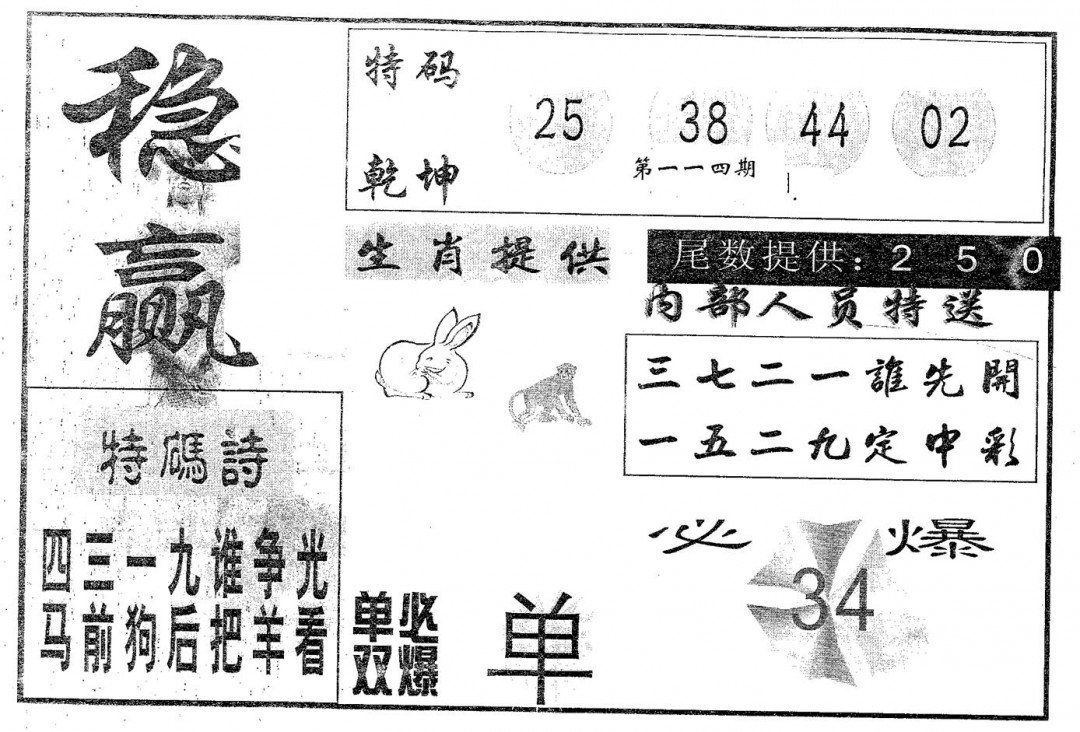 稳赢
特码
乾坤
25 38 44 02
第一一四期
生肖提供
尾数提供：2 5 0
内部人员特送
三七二一誰先開
一五二九定中彩
特碼詩
四三一九谁争光
马前狗后把羊看
单双
必爆
单
必爆
34